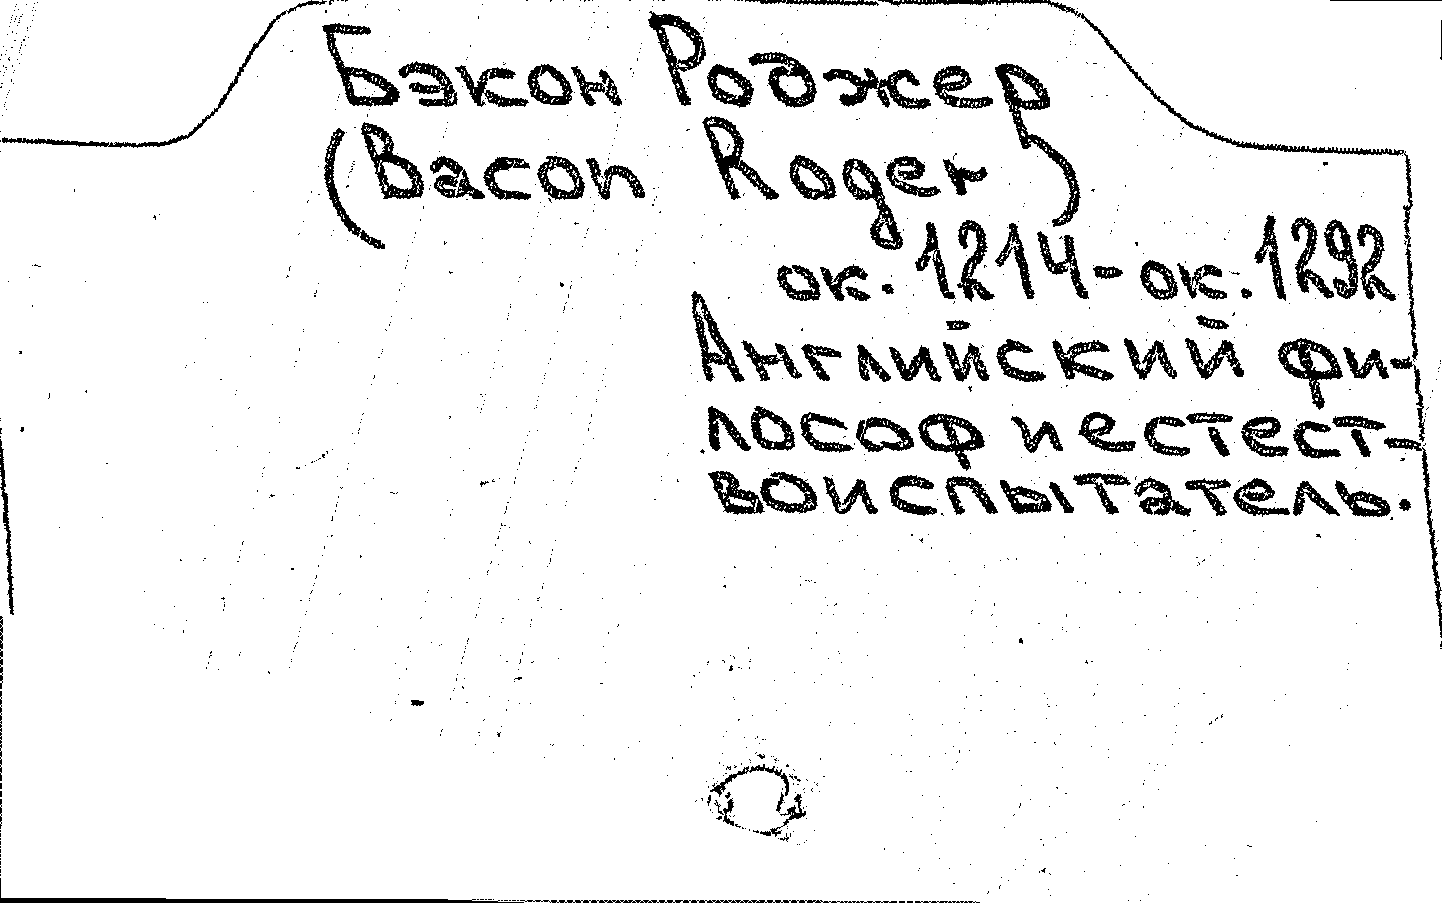 Бэкон Роджер
(Bacon Roger)
ок. 1214-ок. 1292
Английский фи-
лософ и естест-
воиспытатель.